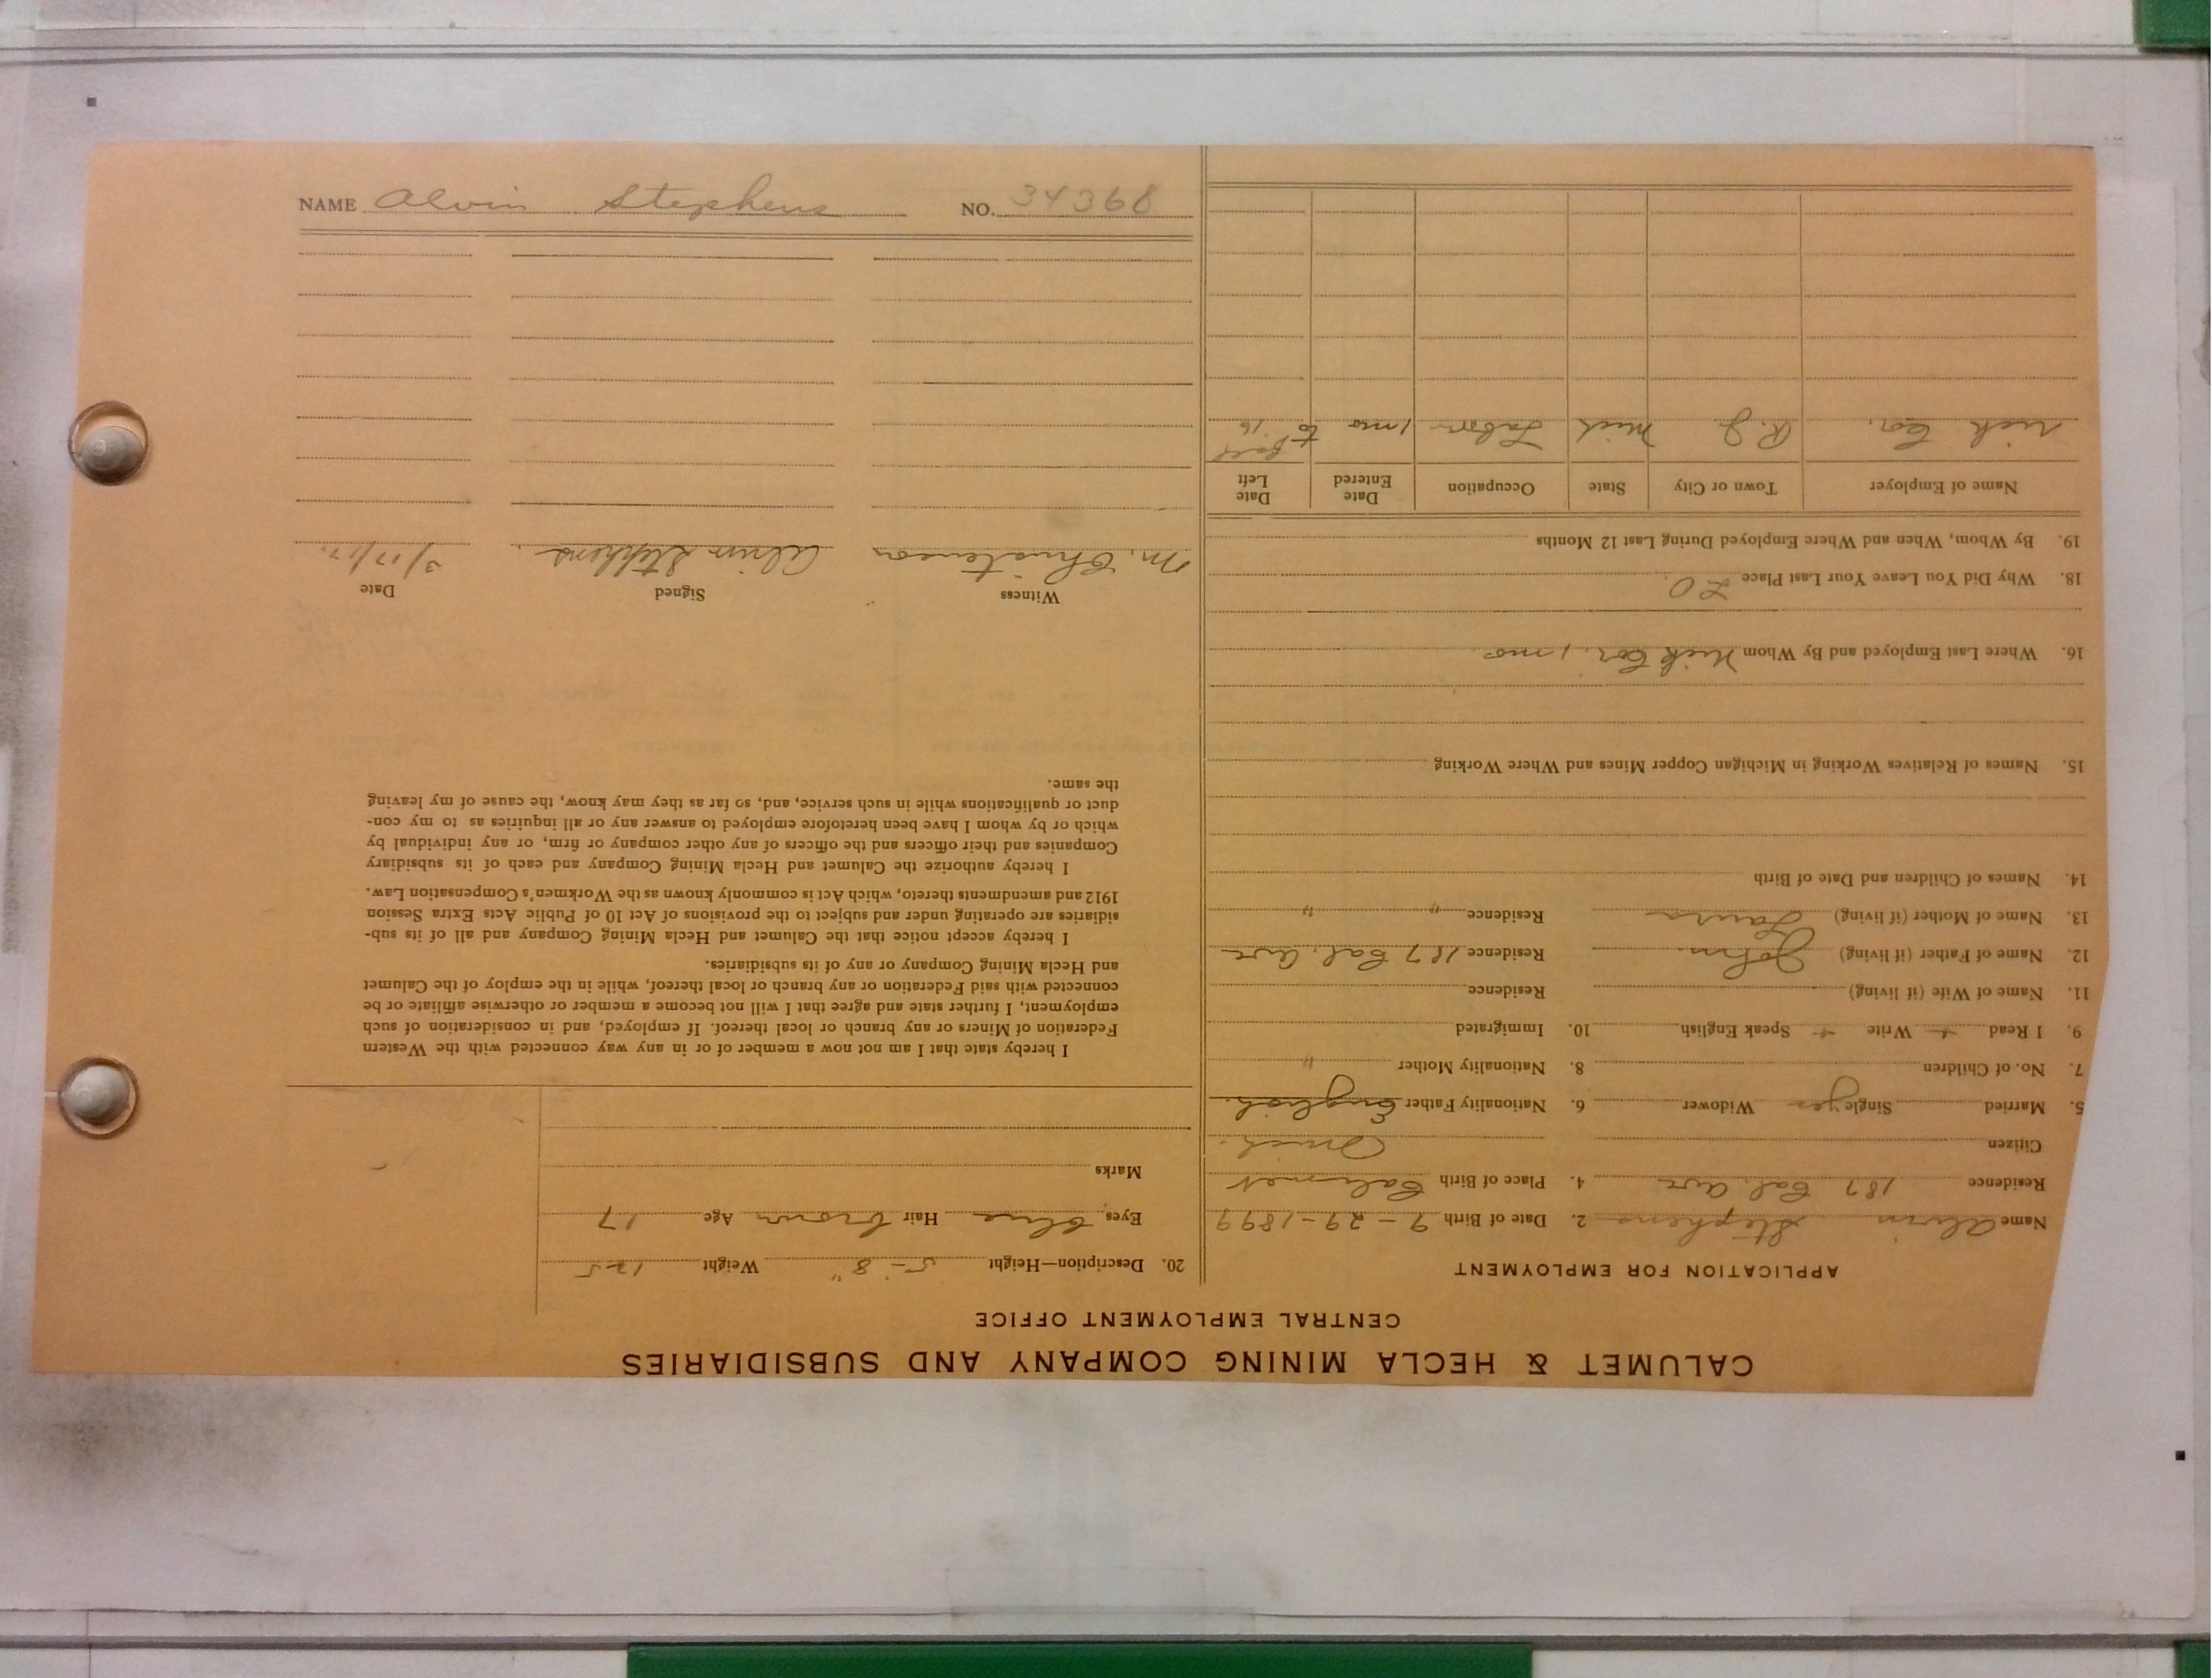 NAME Alvin Stephens NO. 34368
CALUMET & HECLA MINING COMPANY AND SUBSIDIARIES
CENTRAL EMPLOYMENT OFFICE
APPLICATION FOR EMPLOYMENT
Name Alvin Stephens 2. Date of Birth 9-29-1899
Residence 187 Cal. Ave 4. Place of Birth Calumet
Citizen Mich.
5. Married Single yes Widower 6. Nationality Father English.
7. No. of Children 8. Nationality Mother "
9. I Read + Write + Speak English. 10. Immigrated
11. Name of Wife (if living) Residence
12. Name of Father (if living) John. Residence 187 Cal. Ave
13. Name of Mother (if living) Laura Residence " "
14. Names of Children and Date of Birth
15. Names of Relatives Working in Michigan Copper Mines and Where Working
16. Where Last Employed and By Whom Nick Cor, 1 mo
18. Why Did You Leave Your Last Place LO.
19. By Whom, When and Where Employed During Last 12 Months
Name of Employer Town or City State Occupation Date Entered Date Left
Nick Cor. R.J. Mich Labor 1 mo to 16
20. Description—Height 5-8" Weight 125
Eyes blue Hair brown Age 17
Marks
I hereby state that I am not now a member of or in any way connected with the Western
Federation of Miners or any branch or local thereof. If employed, and in consideration of such
employment, I further state and agree that I will not become a member or otherwise affiliate or be
connected with said Federation or any branch or local thereof, while in the employ of the Calumet
and Hecla Mining Company or any of its subsidiaries.
I hereby accept notice that the Calumet and Hecla Mining Company and all of its sub-
sidiaries are operating under and subject to the provisions of Act 10 of Public Acts Extra Session
1912 and amendments thereto, which Act is commonly known as the Workmen's Compensation Law.
I hereby authorize the Calumet and Hecla Mining Company and each of its subsidiary
Companies and their officers and the officers of any other company or firm, or any individual by
which or by whom I have been heretofore employed to answer any or all inquiries as to my con-
duct or qualifications while in such service, and, so far as they may know, the cause of my leaving
the same.
Witness Signed Date
M. Christenson Alvin Stephens. 3/17/17.